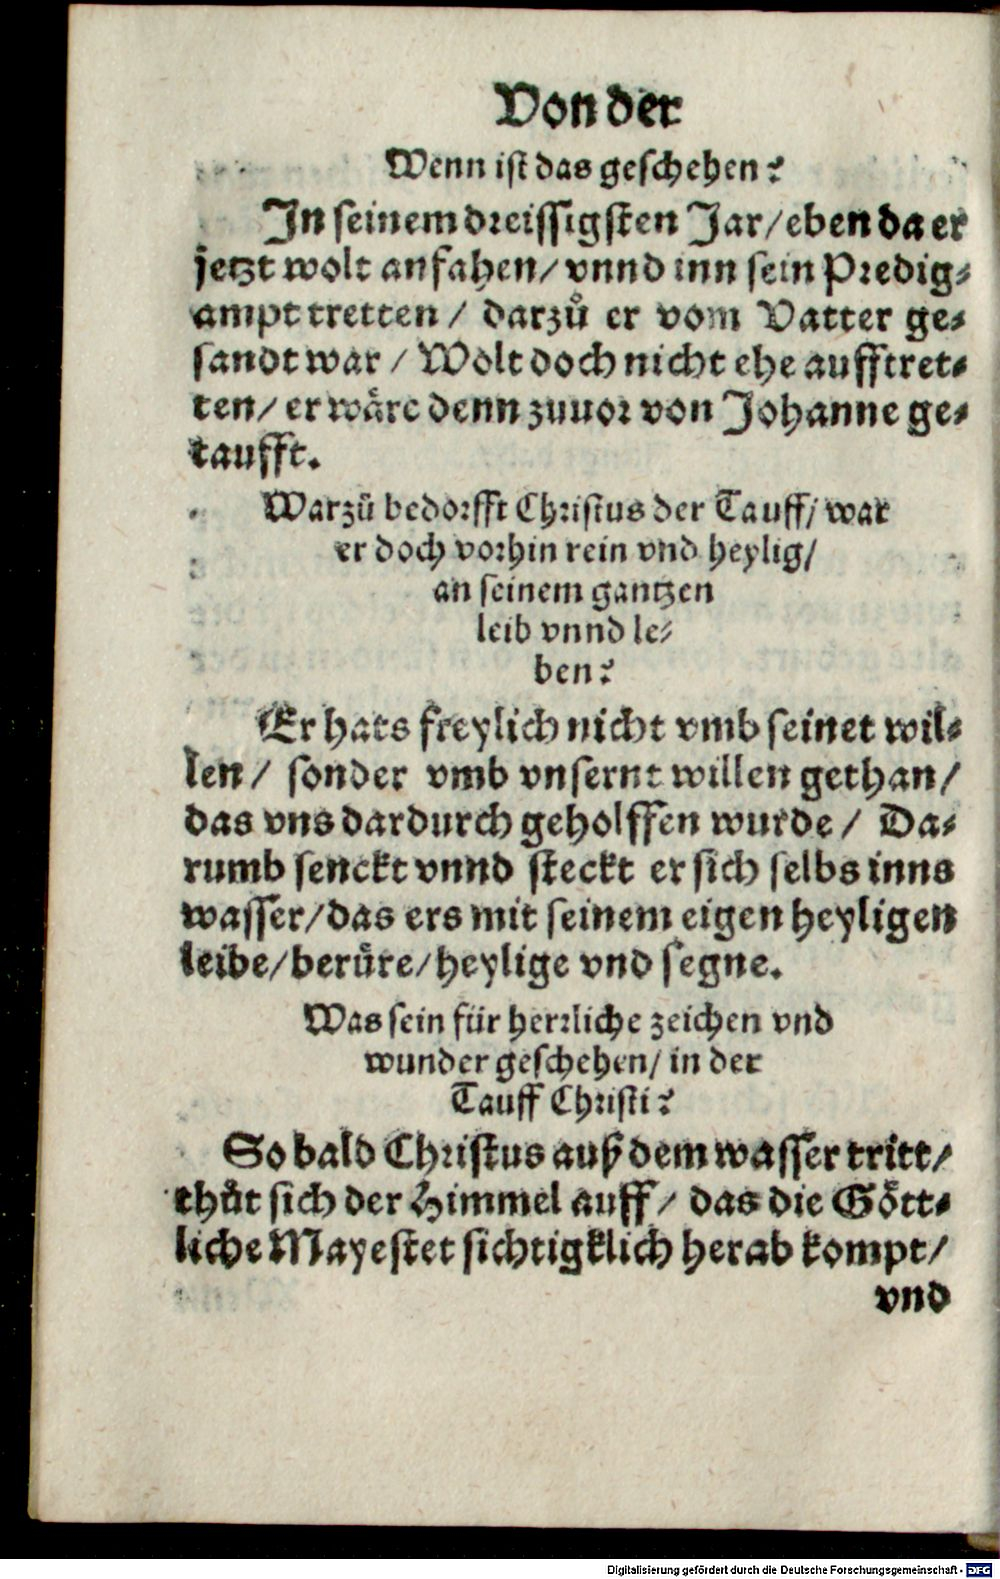 Von der
Wenn ist das geschehen?
In seinem dreissigsten Jar/ eben da er
jetzt wolt anfahen/ vnnd inn sein Predig⸗
ampt tretten/ darzů er vom Vatter ge⸗
sandt war/ Wolt doch nicht ehe aufftret⸗
ten/ er wäre denn zuuor von Johanne ge⸗
taufft.
Warzů bedorfft Christus der Tauff/ war
er doch vorhin rein vnd heylig/
an seinem gantzen
leib vnnd le⸗
ben?
Er hats freylich nicht vmb seinet wil⸗
len/ sonder vmb vnsernt willen gethan/
das vns dardurch geholffen wurde/ Da⸗
rumb senckt vnnd steckt er sich selbs inns
wasser/ das ers mit seinem eigen heyligen
leibe/ berüre/ heylige vnd segne.
Was sein für herrliche zeichen vnd
wunder geschehen/ in der
Tauff Christi?
So bald Christus auß dem wasser tritt/
thůt sich der Himmel auff/ das die Gött⸗
liche Mayestet sichtigklich herab kompt/
vnd
Digitalisierung gefördert durch die Deutsche Forschungsgemeinschaft - DFG